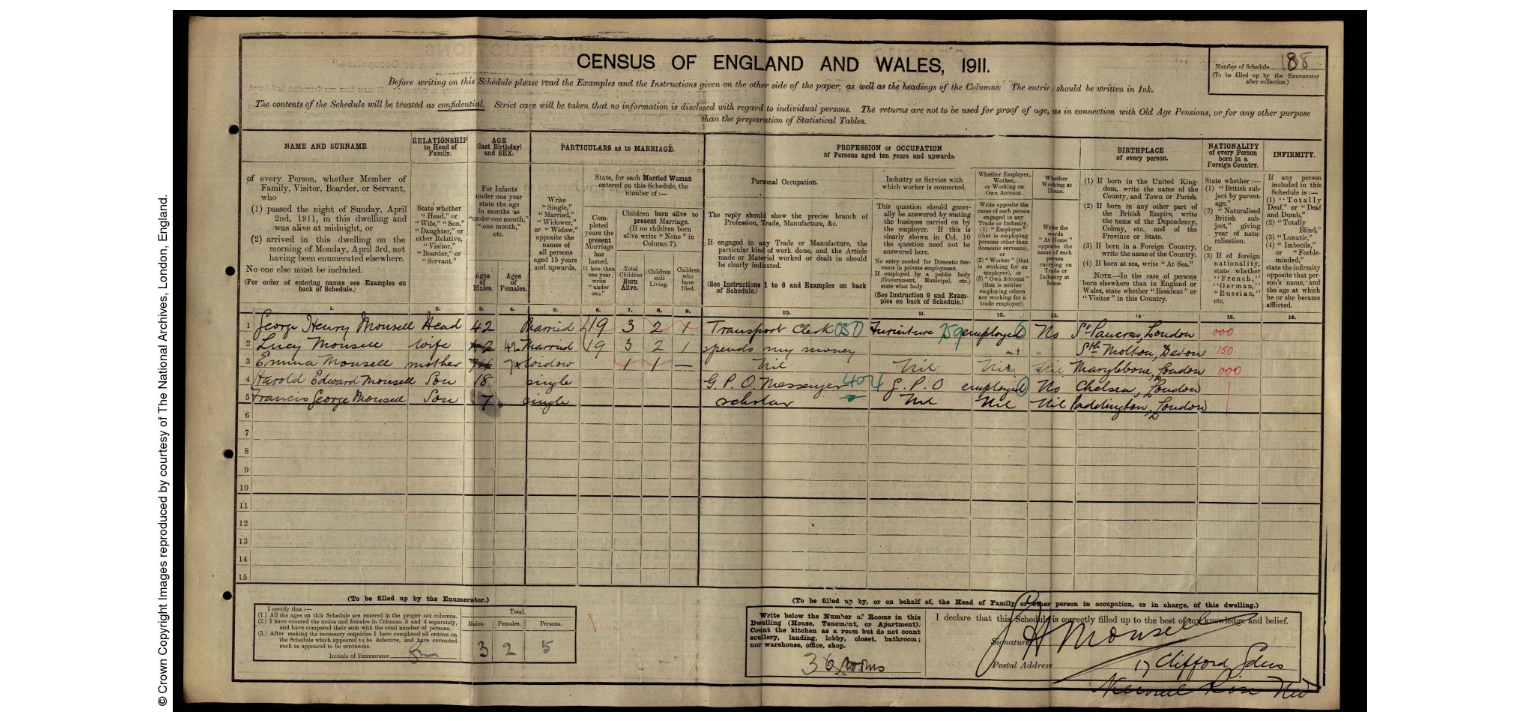 CENSUS OF ENGLAND AND WALES, 1911.
Number of Schedule 188
(To be filled up by the Enumerator
after collection.)
Before writing on this Schedule please read the Examples and the Instructions given on the other side of the paper, as well as the headings of the Columns. The entries should be written in Ink.
The contents of the Schedule will be treated as confidential. Strict care will be taken that no information is disclosed with regard to individual persons. The returns are not to be used for proof of age, as in connection with Old Age Pensions, or for any other purpose
than the preparation of Statistical Tables.
NAME AND SURNAME
RELATIONSHIP
to Head of
Family.
AGE
(last Birthday)
and SEX.
PARTICULARS as to MARRIAGE.
PROFESSION or OCCUPATION
of Persons aged ten years and upwards.
BIRTHPLACE
of every person.
NATIONALITY
of every Person
born in a
Foreign Country.
INFIRMITY.
of every Person, whether Member of
Family, Visitor, Boarder, or Servant,
who
(1) passed the night of Sunday, April
2nd, 1911, in this dwelling and
was alive at midnight, or
(2) arrived in this dwelling on the
morning of Monday, April 3rd, not
having been enumerated elsewhere.
No one else must be included.
(For order of entering names see Examples on
back of Schedule.)
State whether
"Head," or
"Wife," "Son,"
"Daughter," or
other Relative,
"Visitor,"
"Boarder," or
"Servant."
For Infants
under one year
state the age
in months as
"under one month,"
"one month,"
etc.
Ages
of
Males.
Ages
of
Females.
Write
"Single,"
"Married,"
"Widower,"
or "Widow,"
opposite the
names of
all persons
aged 15 years
and upwards.
State, for each Married Woman
entered on this Schedule, the
number of:—
Completed
years the
present
Marriage
has
lasted.
If less than
one year
write
"under
one."
Children born alive to
present Marriage.
(If no children born
alive write "None" in
Column 7).
Total
Children
Born
Alive.
Children
still
Living.
Children
who
have
Died.
Personal Occupation.
The reply should show the precise branch of
Profession, Trade, Manufacture, &c.
If engaged in any Trade or Manufacture, the
particular kind of work done, and the Article
made or Material worked or dealt in should
be clearly indicated.
(See Instructions 1 to 8 and Examples on back
of Schedule.)
Industry or Service with
which worker is connected.
This question should generally
be answered by stating
the business carried on by
the employer. If this is
clearly shown in Col. 10
the question need not be
answered here.
No entry needed for Domestic Servants
in private employment.
If employed by a public body
(Government, Municipal, etc.)
state what body.
(See Instruction 9 and Examples
on back of Schedule.)
Whether Employer,
Worker,
or Working on
Own Account.
Whether
Working at
Home.
(1) If born in the United Kingdom,
write the name of the
County, and Town or Parish.
(2) If born in any other part of
the British Empire, write
the name of the Dependency,
Colony, etc., and of the
Province or State.
(3) If born in a Foreign Country,
write the name of the Country.
(4) If born at sea, write "At Sea."
NOTE.—In the case of persons
born elsewhere than in England or
Wales, state whether "Resident" or
"Visitor" in this Country.
State whether:—
(1) "British subject
by parentage."
(2) "Naturalised
British subject,"
giving
year of naturalisation.
Or
(3) If of foreign
nationality,
state whether
"French,"
"German,"
"Russian,"
etc.
If any person
included in this
Schedule is:—
(1) "Totally
Deaf," or "Deaf
and Dumb,"
(2) "Totally
Blind,"
(3) "Lunatic,"
(4) "Imbecile,"
or "Feeble-
minded,"
state the infirmity
opposite that person's
name, and
the age at which
he or she became
afflicted.
1 George Henry Mousell Head 42 Married 19 3 2 1 Transport Clerk 050 Furniture 759 employed No St Pancras, London 000
2 Lucy Mousell wife 42 Married 19 3 2 1 spends my money Sth Molton, Devon 150
3 Emma Mousell mother widow 1 1 — Nil Nil Nil Nil Marylebone, London 000
4 Harold Edward Mousell Son 18 single G.P.O. Messenger 404 G.P.O employed No Chelsea, London
5 Francis George Mousell Son 7 single scholar Nil Nil Nil Paddington, London
6
7
8
9
10
11
12
13
14
15
(To be filled up by the Enumerator.)
I certify that:—
(1.) All the ages on this Schedule are entered in the proper sex columns.
(2.) I have counted the males and females in Columns 3 and 4 separately,
and have compared their sum with the total number of persons.
(3.) After making the necessary enquiries I have completed all entries on
the Schedule which appeared to be defective, and have corrected
such as appeared to be erroneous.
Initials of Enumerator
Total.
Males. Females. Persons.
3 2 5
(To be filled up by, or on behalf of, the Head of Family or other person in occupation, or in charge, of this dwelling.)
Write below the Number of Rooms in this
Dwelling (House, Tenement, or Apartment).
Count the kitchen as a room but do not count
scullery, landing, lobby, closet, bathroom;
nor warehouse, office, shop.
rooms
I declare that this Schedule is correctly filled up to the best of my knowledge and belief.
Signature G H Mousell
Postal Address 17 Clifford Gdns
Kensal Rise NW
© Crown Copyright Images reproduced by courtesy of The National Archives, London, England.